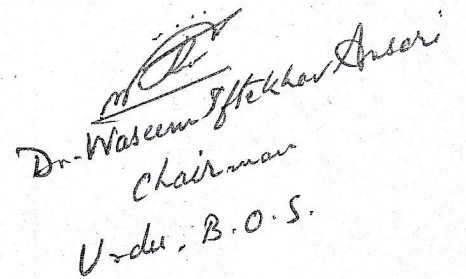 Dr. Waseem Iftekhar Ansari
Chairman
Urdu. B.O.S.